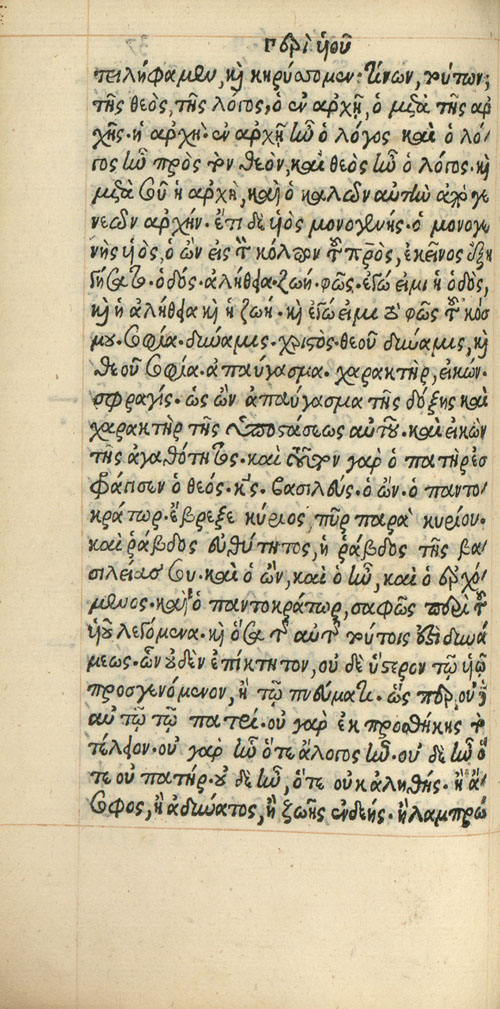 Περὶ ὑιοῦ
τειλήφαμεν, καὶ κηρύσσομεν· τίνων, τούτων;
τῆς θεὸς, τῆς λόγος, ὁ ἐν ἀρχῆ, ὁ μετὰ τῆς ἀρ
χῆς· ἡ ἀρχη· ἐν ἀρχῆ ἦν ὁ λόγος καὶ ὁ λό/
γος ἦν πρὸς τὸν θεον, καὶ θεὸς ἦν ὁ λόγος· καὶ
μετὰ σοῦ ἡ ἀρχὴ, καὶ ὁ καλῶν αὐτὴν ἀπὸ γε
νεῶν ἀρχήν· ἔτι δὲ ὑιὸς μονογενής· ὁ μονογε
νὴς ὑιὸς, ὁ ὢν εἰς τὸν κόλπον τοῦ πρ̅ὸς, ἐκεῖνος ἐξη
γήσατο· ὁδός· ἀλήθεια· ζωή· φῶς· ἐγώ εἰμι ἡ ὁδὸς,
καὶ ἡ ἀλήθεια καὶ ἡ ζωή· καὶ ἐγώ εἰμι τὸ φῶς τοῦ κόσ
μου· σοφία· δύναμις· χριστὸς· θεοῦ δύναμις, καὶ
θεοῦ σοφία· ἀπαύγασμα· χαρακτὴρ, εἰκών·
σφραγίς· ὡς ὢν ἀπαύγασμα τῆς δόξης καὶ
χαρακτὴρ τῆς ὑποστάσεως αὐτοῦ· καὶ εἰκὼν
τῆς ἀγαθότητος· καὶ τοῦτον γὰρ ὁ πατὴρ ἐσ
φράγισεν ὁ θεός· κς̅· βασιλεύς· ὁ ὤν· ὁ παντο/
κράτωρ· ἔβρεξε κύριος, πῦρ παρὰ κυρίου·
καὶ ῥάβδος εὐθύτητος, ἡ ῥάβδος τῆς βα/
σιλείας σου· καὶ ὁ ὢν, καὶ ὁ ἦν, καὶ ὁ ἐρχό/
μενος· καὶ ὁ παντοκράτωρ, σαφῶς περὶ τοῦ
ὑιοῦ λεγόμενα· καὶ ὅσα τῆς αὐτῆς τούτοις ἐστὶ δυνά
μεως· ὧν οὐδὲν ἐπίκτητον, οὐ δὲ ὕστερον τῶ ὑιῶ
προσγενόμενον, ἢ τῶ πνεύματι· ὥς περ οὐδὲ
αὐτῶ τῶ πατρί· οὐ γὰρ ἐκ προσθήκης τὸ
τέλειον· οὐ γὰρ ἦν ὅτε ἄλογος ἦν· οὐ δὲ ἦν ὅ
τε οὐ πατήρ· οὐ δὲ ἦν, ὅτε οὐκ ἀληθής· ἢ ἄ/
σοφος, ἢ ἀδύνατος, ἢ ζωῆς ἐνδεής· ἢ λαμπρό